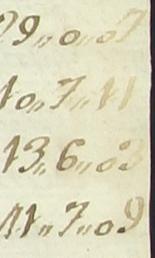 29„0„07
10„7„11
13„6„03
11„7„09